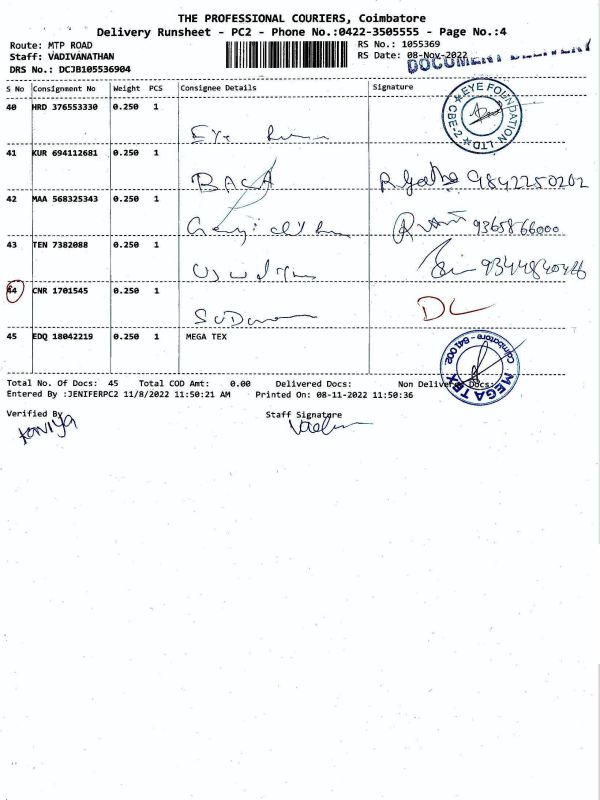 THE PROFESSIONAL COURIERS, Coimbatore
Delivery Runsheet - PC2 - Phone No.:0422-3505555 - Page No.:4
Route: MTP ROAD
Staff: VADIVANATHAN
DRS No.: DCJB105536904
RS No.: 1055369
RS Date: 08-Nov-2022
DOCUMENT DELIVERY
S No Consignment No Weight PCS Consignee Details Signature
40 HRD 376553330 0.250 1 Eye
EYE FOUNDATION LTD. CBE-2
41 KUR 694112681 0.250 1 BACA 9842250202
42 MAA 568325343 0.250 1 9365866000
43 TEN 7382088 0.250 1
44 CNR 1701545 0.250 1 DL
45 EDQ 18042219 0.250 1 MEGA TEX
MEGA TEX Coimbatore - 641 002
Total No. Of Docs: 45 Total COD Amt: 0.00 Delivered Docs: Non Delivered Docs:
Entered By :JENIFERPC2 11/8/2022 11:50:21 AM Printed On: 08-11-2022 11:50:36
Verified By Staff Signature